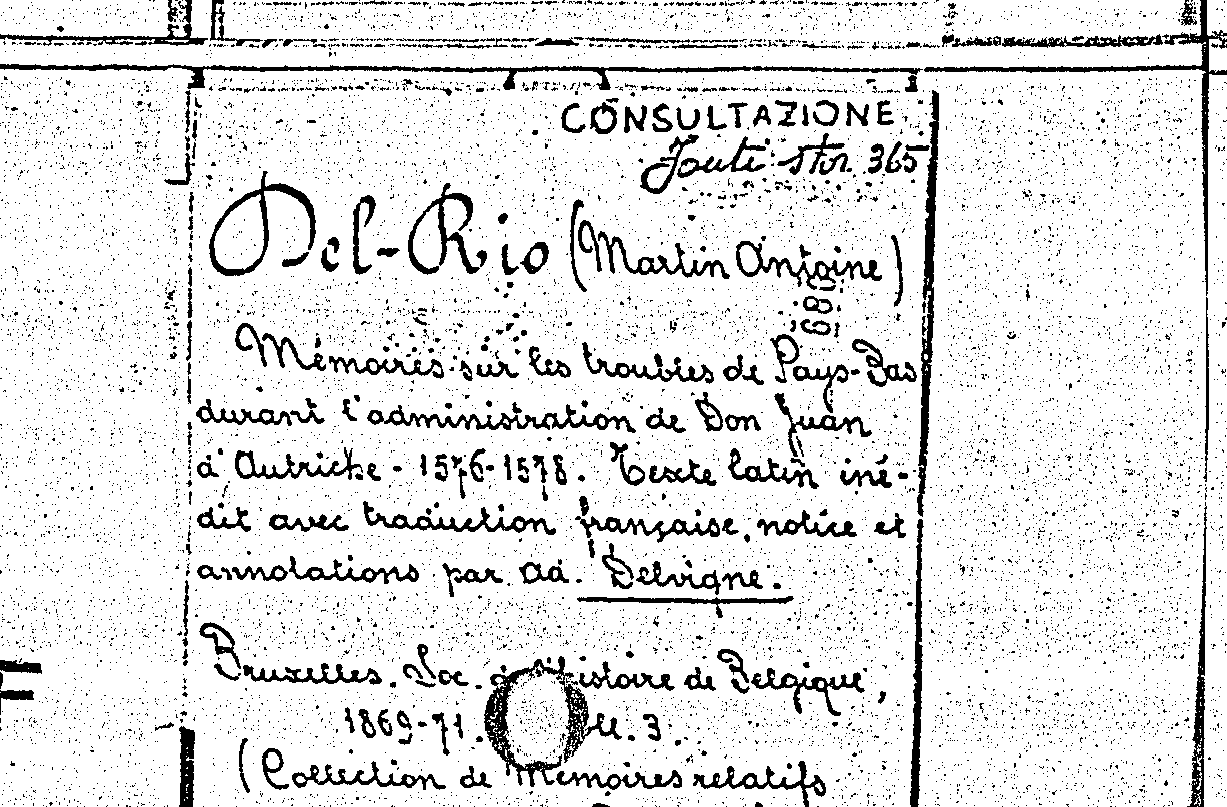 CONSULTAZIONE
Fonti stor. 365
Del-Rio (Martin Antoine)
Mémoires sur les troubles de Pays-Bas
durant l'administration de Don Juan
d'Autriche - 1576-1578. Texte latin iné-
dit avec traduction française, notice et
annotations par Ad. Delvigne.
Bruxelles. Soc. de Belgique,
1869-71. 3.
(Collection de Mémoires relatifs